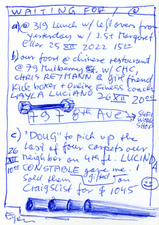 WAITING FOR / @
a) @ 319 Lunch w/ Leftovers from
yesterday w/ 1st Margaret
Eller 25 XII 2022 15°°
b) our food @ chinese restaurant
@ 99 Mulberry St. w/ SMC,
CHRIS REYMANN & girlfriend
Kick boxer & owning fitness coach
LAYLA LUCIANO 26 XII 20°°
797 8th Ave
c) 'DOUG' to pick up the
26 last of four carpets our
XII neighbor on 4th fl. LUCINDA
10°° CONSTABLE gave me. I
sold them + gifted on
Craigslist for $1045